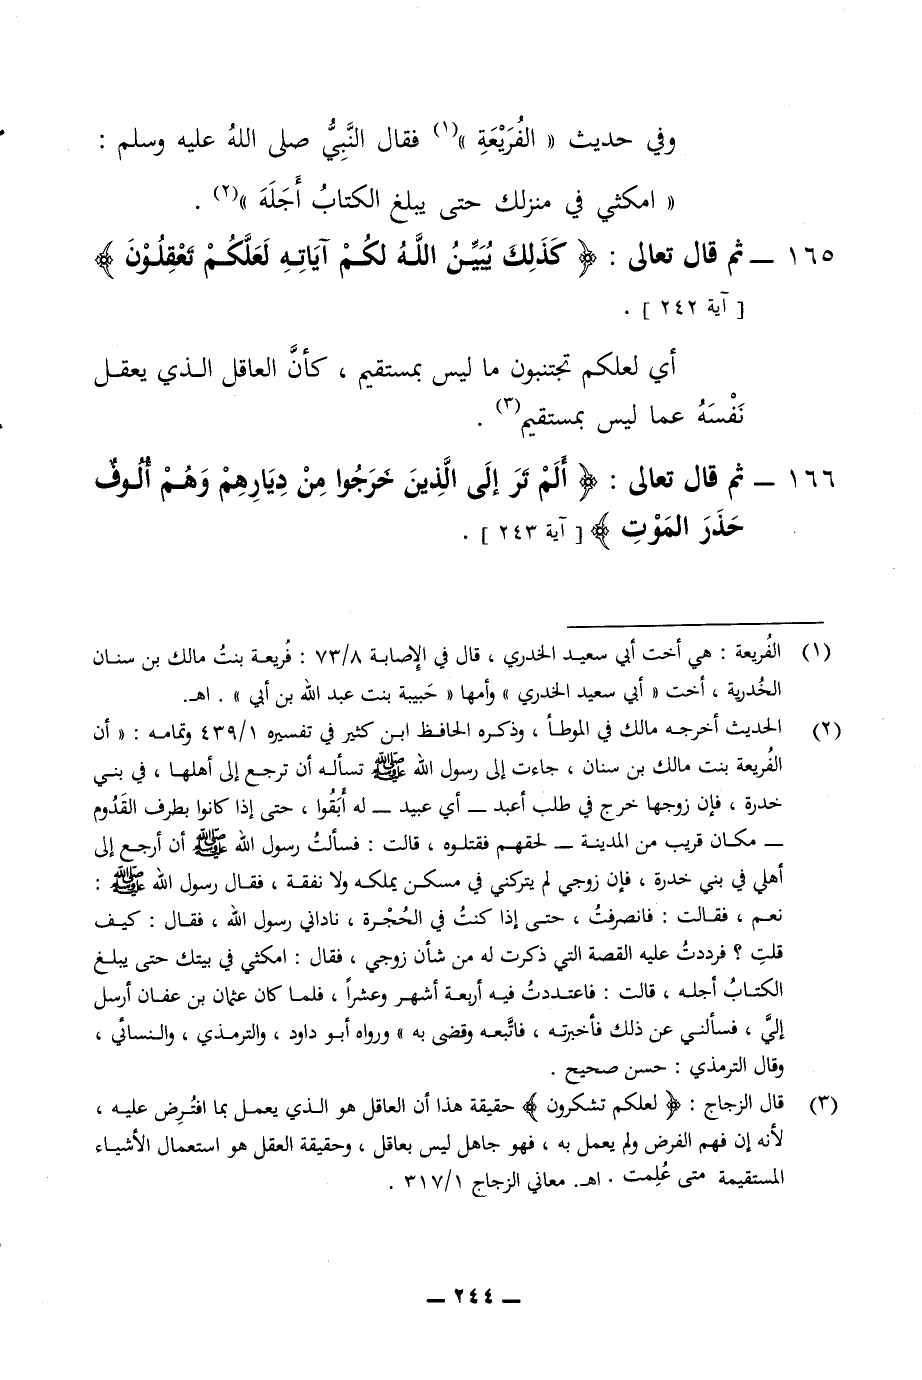 وفي حديث « الفُرَيْعَةِ »(١) فقال النَّبِيُّ صلى اللهُ عليه وسلم :
« امكثي في منزلك حتى يبلغ الكتابُ أَجَلَهَ »(٢) .
١٦٥ ــ ثم قال تعالى : ﴿ كَذَلِكَ يُبَيِّنُ اللَّهُ لكُمْ آيَاتِهِ لَعَلَّكُمْ تَعْقِلُوْنَ ﴾
[ آية ٢٤٢ ] .
أي لعلكم تجتنبون ما ليس بمستقيم ، كأنَّ العاقل الـذي يعقـل
نَفْسَهُ عما ليس بمستقيم(٣) .
١٦٦ ــ ثم قال تعالى : ﴿ أَلَمْ تَرَ إلَى الَّذِينَ خَرَجُوا مِنْ دِيَارِهِمْ وَهُـمْ أُلُـوفٌ
حَذَرَ المَوْتِ ﴾ [ آية ٢٤٣ ] .
(١) الفُريعة : هي أخت أبي سعيـد الخدري ، قال في الإصابـة ٧٣/٨ : فُريعـة بنتُ مالك بن سنـان
الخُدرية ، أخت « أبي سعيد الخدري » وأمها « حَبيبة بنت عبد الله بن أبي » . اهـ.
(٢) الحديث أخرجـه مالك في الموطأ ، وذكـره الحافـظ ابـن كثير في تفسيره ٤٣٩/١ وتمامـه : « أن
الفُريعة بنت مالك بن سنان ، جاءت إلى رسول الله ﷺ تسألـه أن ترجـع إلى أهلهـا ، في بنـي
خدرة ، فإن زوجهـا خرج في طلب أعبـد ــ أي عبيـد ــ له أَبَقُوا ، حتـى إذا كانوا بطرف القَدُوم
ــ مكـان قريب مـن المدينـة ــ لحقهـم فقتلـوه ، قالت : فسألتُ رسول الله ﷺ أن أرجـع إلى
أهلي في بني خدرة ، فإن زوجي لم يتركنـي في مسكـن يملكـه ولا نفقـة ، فقـال رسول الله ﷺ :
نعـم ، فقـالت : فانصرفتُ ، حتـى إذا كنتُ في الحُجْـرة ، ناداني رسول الله ، فقـال : كيـف
قلتِ ؟ فرددتُ عليه القصة التي ذكرت له من شأن زوجي ، فقال : امكثي في بيتك حتى يبلـغ
الكتـابُ أجلـه ، قالت : فاعتـددتُ فيـه أربعـة أشهـر وعشراً ، فلمـا كان عثمان بن عفـان أرسل
إليَّ ، فسألنـي عن ذلك فأخبرتـه ، فاتَّبعـه وقضى به » ورواه أبـو داود ، والترمـذي ، والنسائي ،
وقال الترمذي : حسن صحيح .
(٣) قال الزجاج : ﴿ لعلكم تشكرون ﴾ حقيقة هذا أن العاقل هو الـذي يعمـل بما افتُـرِض عليـه ،
لأنه إن فهم الفرض ولم يعمل به ، فهو جاهل ليس بعاقل ، وحقيقة العقل هو استعمال الأشيـاء
المستقيمة متى عُلِمت . اهـ. معاني الزجاج ٣١٧/١ .
ــ ٢٤٤ ــ